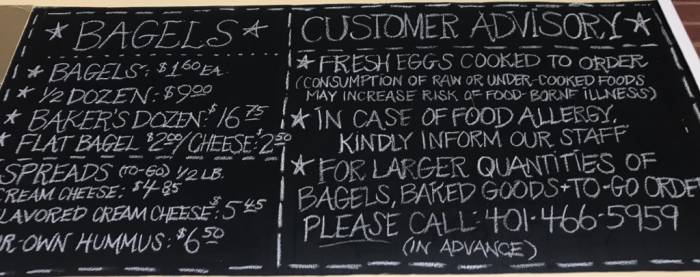 * BAGELS *
* BAGELS: $1.60 EA.
* 1/2 DOZEN: $9.00
* BAKER'S DOZEN: $16.75
* FLAT BAGEL $2.00/CHEESE: $2.50
SPREADS (TO-GO) 1/2 LB.
REAM CHEESE: $4.85
LAVORED CREAM CHEESE: $5.45
R OWN HUMMUS: $6.50
CUSTOMER ADVISORY *
* FRESH EGGS COOKED TO ORDER
(CONSUMPTION OF RAW OR UNDER-COOKED FOODS
MAY INCREASE RISK OF FOOD-BORNE ILLNESS)
* IN CASE OF FOOD ALLERGY,
KINDLY INFORM OUR STAFF
* FOR LARGER QUANTITIES OF
BAGELS, BAKED GOODS + TO-GO ORDE
PLEASE CALL: 401-466-5959
(IN ADVANCE)